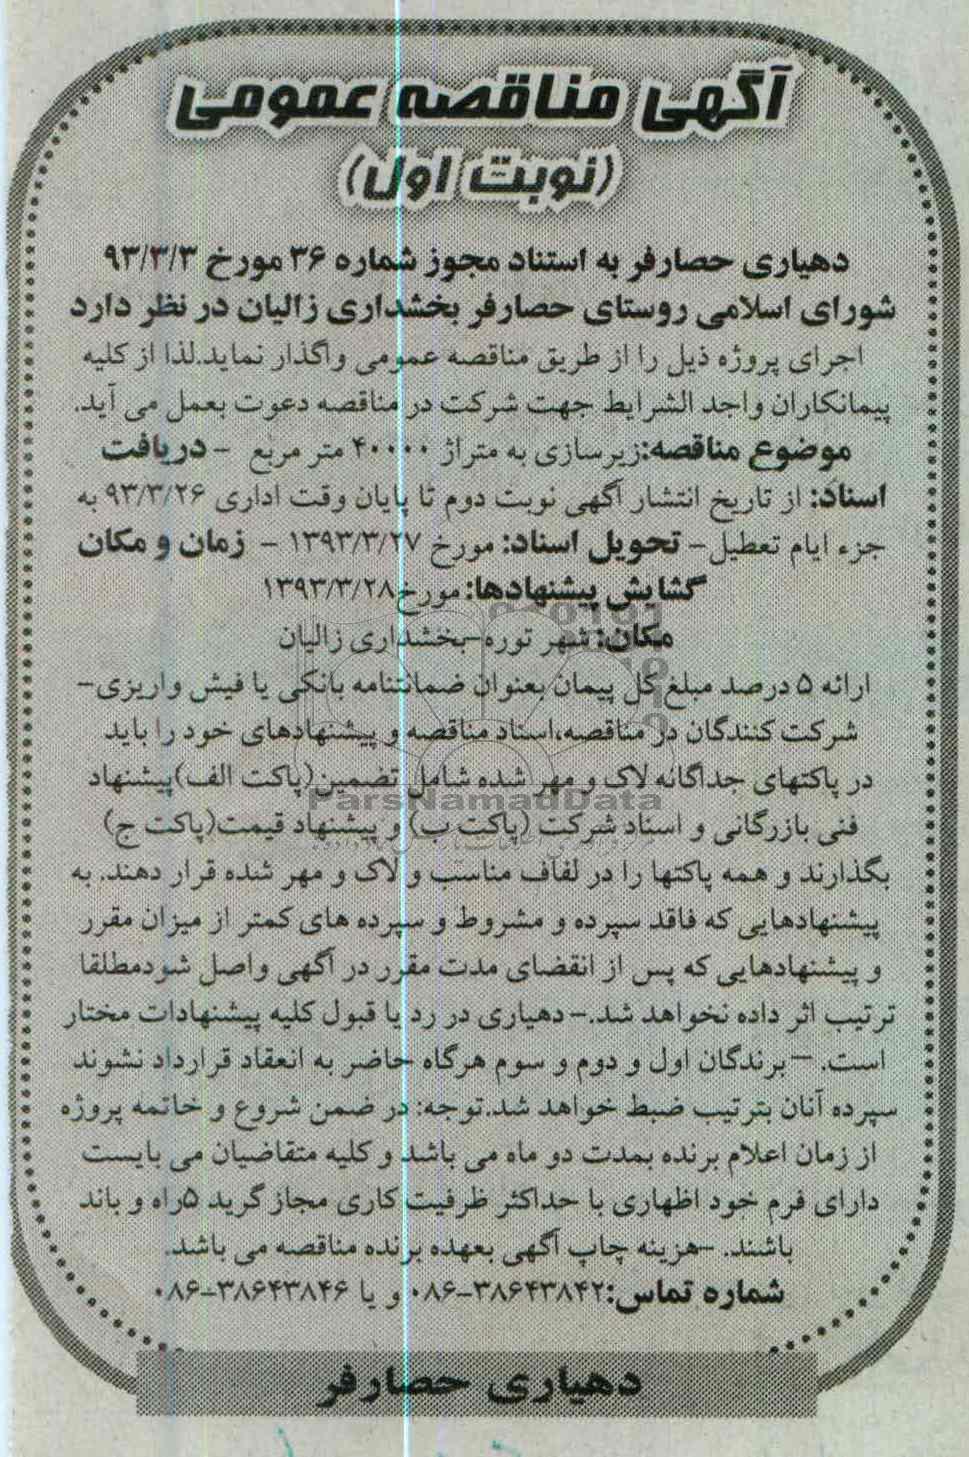 آگهی مناقصه عمومی
(نوبت اول)
دهیاری حصارفر به استناد مجوز شماره ۳۶ مورخ ۹۳/۳/۳
شورای اسلامی روستای حصارفر بخشداری زالیان در نظر دارد
اجرای پروژه ذیل را از طریق مناقصه عمومی واگذار نماید.لذا از کلیه
پیمانکاران واجد الشرایط جهت شرکت در مناقصه دعوت بعمل می آید.
موضوع مناقصه:زیرسازی به متراژ ۴۰۰۰۰ متر مربع - دریافت
اسناد: از تاریخ انتشار آگهی نوبت دوم تا پایان وقت اداری ۹۳/۳/۲۶ به
جزء ایام تعطیل- تحویل اسناد: مورخ ۱۳۹۳/۳/۲۷ - زمان و مکان
گشایش پیشنهادها: مورخ۱۳۹۳/۳/۲۸
مکان: شهر توره-بخشداری زالیان
ارائه ۵ درصد مبلغ کل پیمان بعنوان ضمانتنامه بانکی یا فیش واریزی-
شرکت کنندگان در مناقصه،اسناد مناقصه و پیشنهادهای خود را باید
در پاکتهای جداگانه لاک و مهر شده شامل تضمین(پاکت الف)پیشنهاد
ParsNamadData
فنی بازرگانی و اسناد شرکت (پاکت ب) و پیشنهاد قیمت(پاکت ج)
بگذارند و همه پاکتها را در لفاف مناسب و لاک و مهر شده قرار دهند. به
پیشنهادهایی که فاقد سپرده و مشروط و سپرده های کمتر از میزان مقرر
و پیشنهادهایی که پس از انقضای مدت مقرر در آگهی واصل شودمطلقا
ترتیب اثر داده نخواهد شد.-دهیاری در رد یا قبول کلیه پیشنهادات مختار
است. -برندگان اول و دوم و سوم هرگاه حاضر به انعقاد قرارداد نشوند
سپرده آنان بترتیب ضبط خواهد شد.توجه: در ضمن شروع و خاتمه پروژه
از زمان اعلام برنده بمدت دو ماه می باشد و کلیه متقاضیان می بایست
دارای فرم خود اظهاری با حداکثر ظرفیت کاری مجاز گرید ۵راه و باند
باشند. -هزینه چاپ آگهی بعهده برنده مناقصه می باشد.
شماره تماس:۳۸۶۴۳۸۴۲-۰۸۶ و یا ۳۸۶۴۳۸۴۶-۰۸۶
دهیاری حصارفر